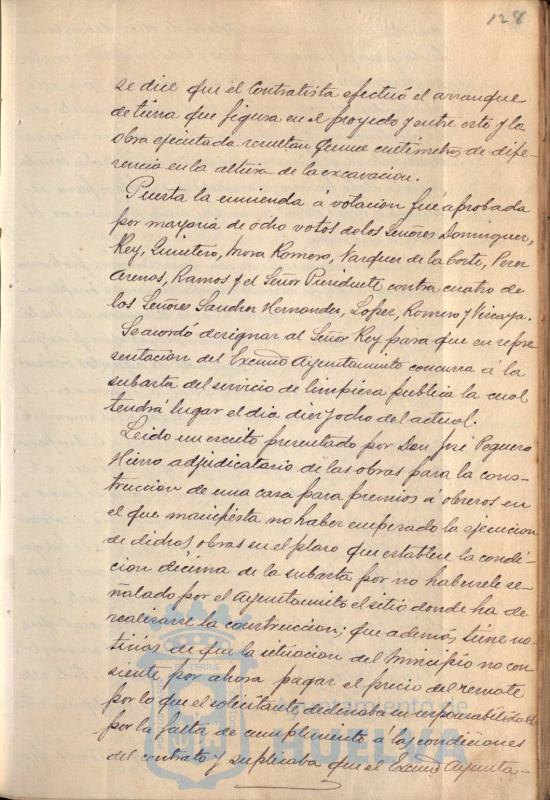 128
se dice que el Contratista efectuó el arranque
de tierra que figura en el proyecto y entre esto y la
obra ejecutada resultan quince centímetros de dife-
rencia en la altura de la excavacion.
Puesta la enmienda á votacion fué aprobada
por mayoria de ocho votos de los Señores Dominguez,
Rey, Quintero, Mora Romero, Vazquez de la Corte, Perez
Arenas, Ramos y el Señor Presidente contra cuatro de
los Señores Sanchez Hernandez, Lopez, Romero y Vizcaya.
Se acordó designar al Señor Rey para que en repre
sentacion del Excmo Ayuntamiento concurra á la
subasta del servicio de limpieza publica la cual
tendrá lugar el dia diez y ocho del actual.
Leido un escrito presentado por Don José Peguero
Hierro adjudicatario de las obras para la cons-
truccion de una casa para premios á obreros en
el que manifiesta no haber empezado la ejecucion
de dichas obras en el plazo que establece la condi-
cion décima de la subasta por no habersele se-
ñalado por el Ayuntamiento el sitio donde ha de
realizarse la construccion; que además tiene no-
ticias de que la situacion del Municipio no con
siente por ahora pagar el precio del remate
por lo que el solicitante declinaba su responsabilidad
por la falta de cumplimiento á las condiciones
del contrato y suplicaba que el Excmo Ayunta-
Ayuntamiento de
HUELVA